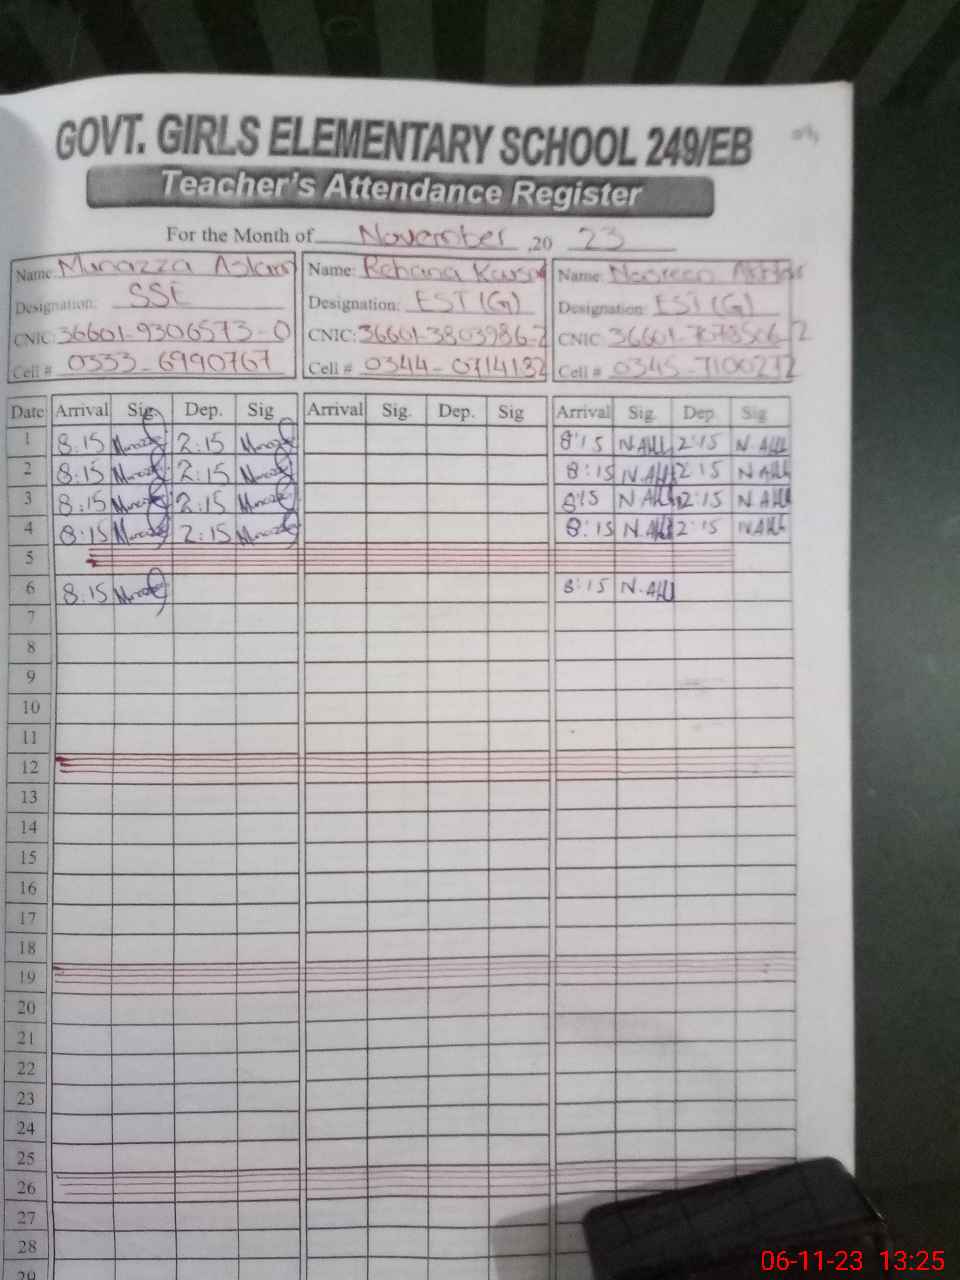 GOVT. GIRLS ELEMENTARY SCHOOL 249/EB
Teacher's Attendance Register
For the Month of November ,20 23
Name: Munazza Aslam Name: Rehana Kausar Name: Nasreen Akhtar
Designation: SSE Designation: EST (G) Designation: EST (G)
CNIC: 36601-9306573-0 CNIC: 36601-3803986-2 CNIC: 36601-
Cell # 0333-6990767 Cell # 0344-0714132 Cell # 0345-7100272
Date Arrival Sig. Dep. Sig Arrival Sig. Dep. Sig Arrival Sig. Dep. Sig
1 8:15 2:15 8:15 2:15
2 8:15 2:15 8:15 2:15
3 8:15 2:15 8:15 2:15
4 8:15 2:15 8:15 2:15
5
6 8:15 8:15
7
8
9
10
11
12
13
14
15
16
17
18
19
20
21
22
23
24
25
26
27
28
29
06-11-23 13:25